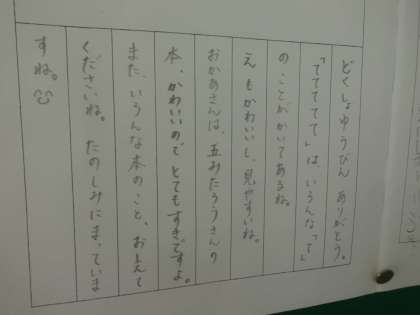 どくしょゆうびん ありがとう。
「ててててて」は いろんな「て」
の ことが かいて あるね。
え も かわいいし、見やすいね。
おかあさんは、五みたろうさんの
本、かわいいので とてもすきですよ。
また、いろんな本のこと、おしえて
くださいね。 たのしみに まっていま
すね。